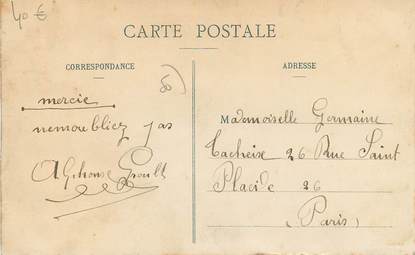 40 €
CARTE POSTALE
CORRESPONDANCE
ADRESSE
mercie
nemoubliez pas
Alphonse
Mademoiselle Germaine
26 Rue Saint
Placide 26
(Paris)